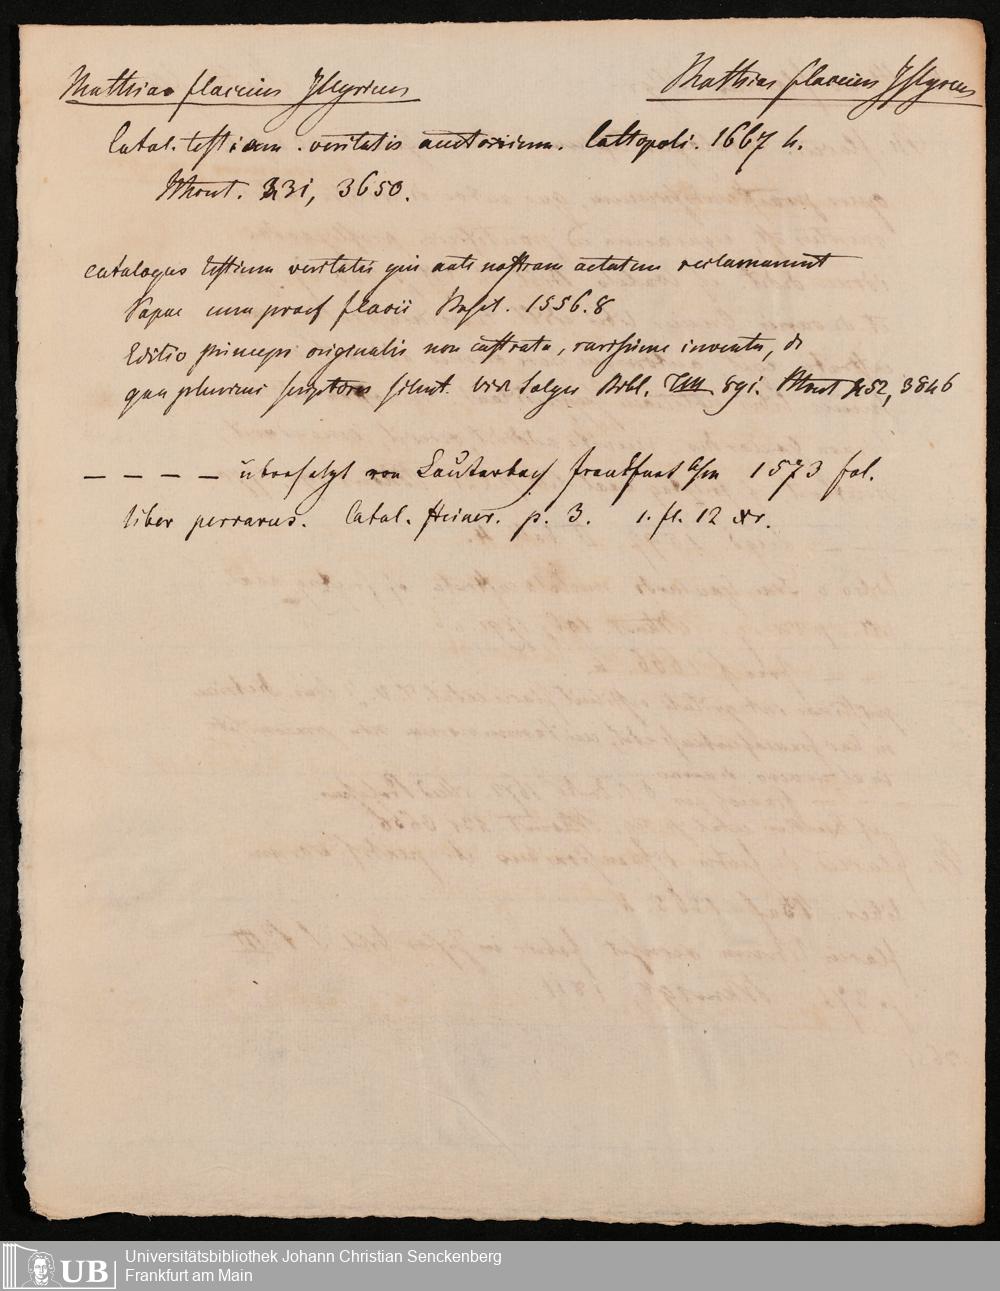 Mathias flacius Jllyricus
Mathias flacius Jllyricus
Catal. testium veritatis auctarium. Cattopoli. 1667 4.
Thout. 231, 3650.
catalogus testium veritatis qui ante nostram aetatem reclamarunt
Papae cum praef flacii Basil. 1556. 8
Editio princeps originalis non castrata, rarissime inventa, de
qua plurimi scriptores silent. vid Salger Bibl. 891. Thout 252, 3846
— — — — übersetzt von Lauterbach Frankfurt a/m 1573 fol.
liber perrarus. Catal. p. 3. 1. fl. 12 xr.
UB
Universitätsbibliothek Johann Christian Senckenberg
Frankfurt am Main